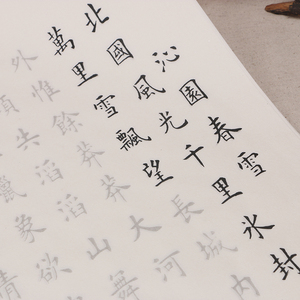 沁園春雪
北國風光千里氷封
萬里雪飄望長城內
外惟餘莽莽大河
頓失滔滔山舞
蠟象欲